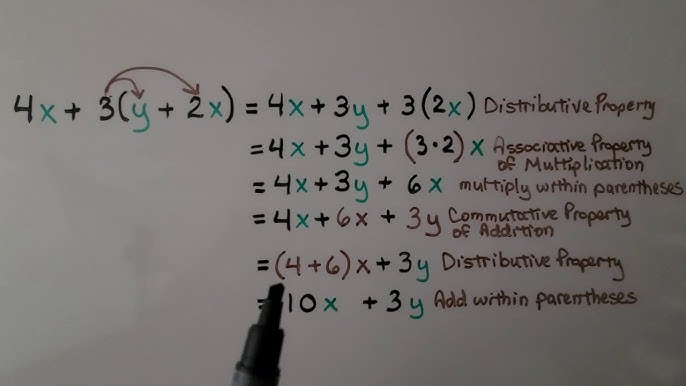 4x + 3(y + 2x) = 4x + 3y + 3(2x) Distributive Property
= 4x + 3y + (3·2)x Associative Property
of Multiplication
= 4x + 3y + 6x multiply within parentheses
= 4x + 6x + 3y Commutative Property
of Addition
= (4+6)x + 3y Distributive Property
= 10x + 3y Add within parentheses